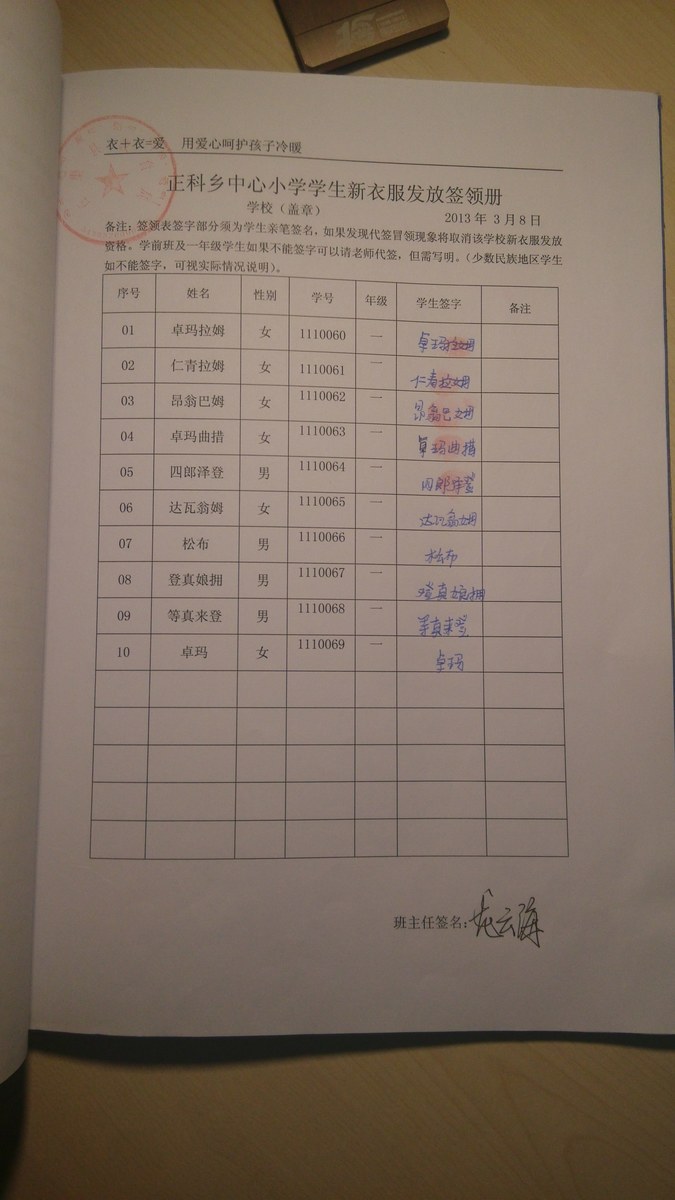 衣+衣=爱 用爱心呵护孩子冷暖
正科乡中心小学学生新衣服发放签领册
学校（盖章）
2013 年 3 月 8 日
备注：签领表签字部分须为学生亲笔签名，如果发现代签冒领现象将取消该学校新衣服发放
资格。学前班及一年级学生如果不能签字可以请老师代签，但需写明。（少数民族地区学生
如不能签字，可视实际情况说明）。
序号 姓名 性别 学号 年级 学生签字 备注
01 卓玛拉姆 女 1110060 一 卓玛拉姆
02 仁青拉姆 女 1110061 一 仁青拉姆
03 昂翁巴姆 女 1110062 一 昂翁巴姆
04 卓玛曲措 女 1110063 一 卓玛曲措
05 四郎泽登 男 1110064 一 四郎泽登
06 达瓦翁姆 女 1110065 一 达瓦翁姆
07 松布 男 1110066 一 松布
08 登真娘拥 男 1110067 一 登真娘拥
09 等真来登 男 1110068 一 等真来登
10 卓玛 女 1110069 一 卓玛
班主任签名：龙云海